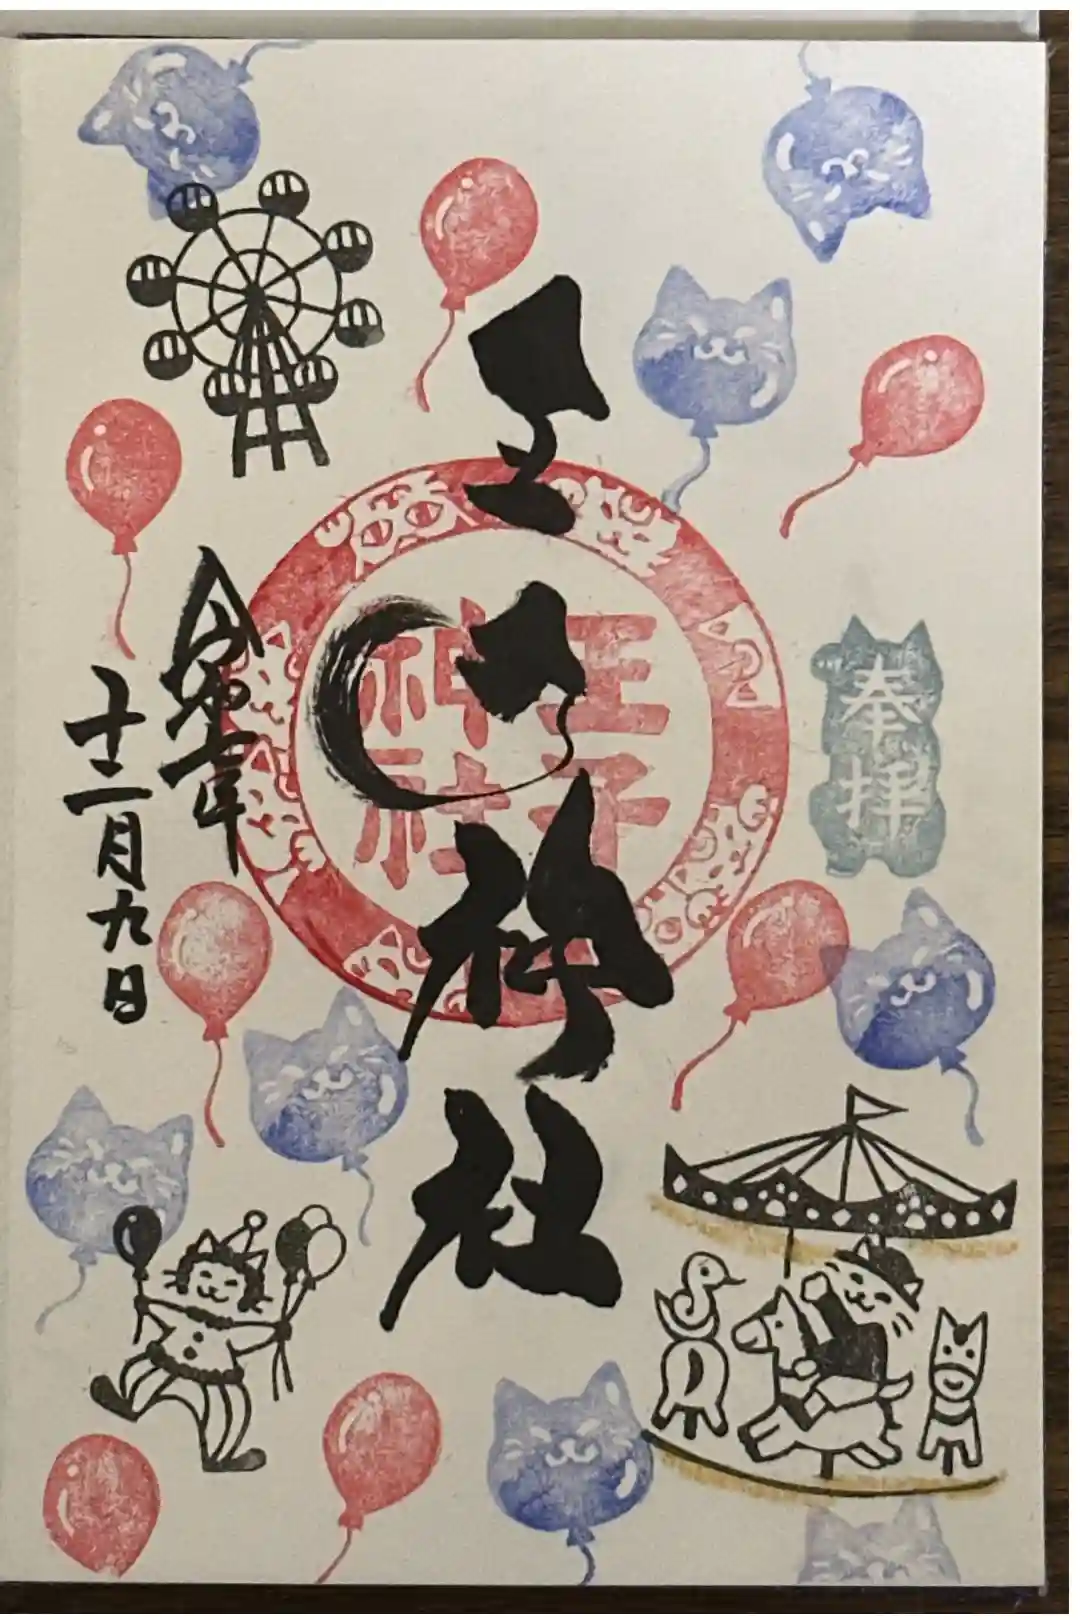 奉拝
王子神社
王子
神社
令和七年
十二月九日